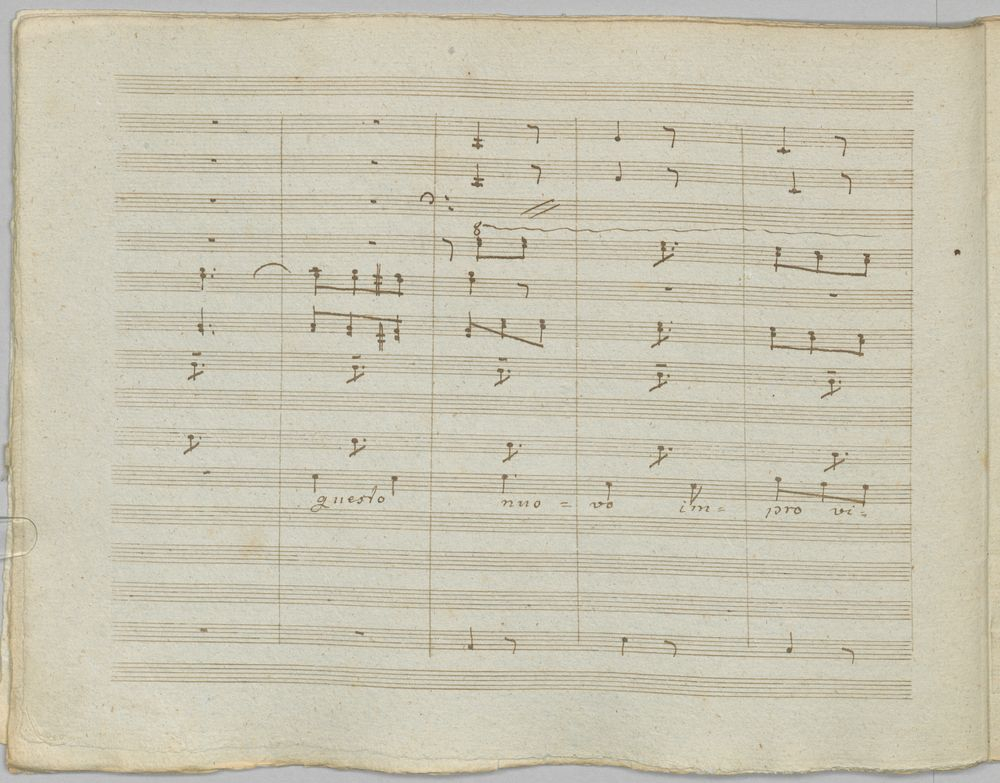 8
questo nuo = vo im = pro vi =